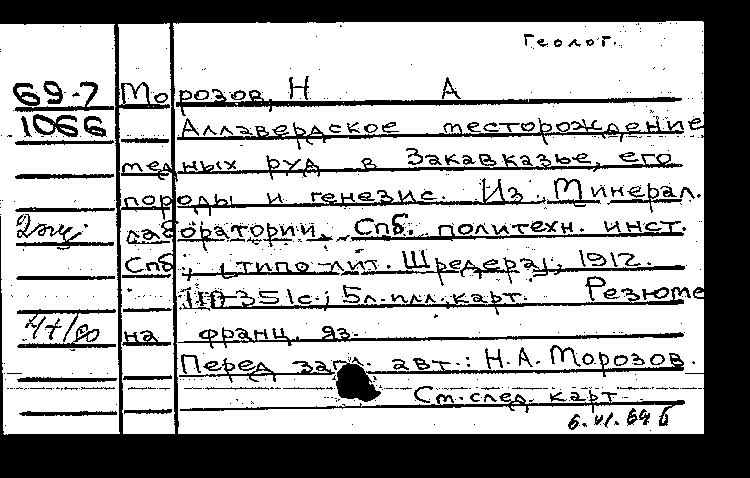 Геолог.
69-7 Морозов, Н А
1066 Аллавердское месторождение
медных руд в Закавказье, его
породы и генезис. Из Минерал.
2экз лаборатории Спб. политехн. инст.
Спб., [типо-лит. Шредера], 1912.
351с.; 5л.илл.карт. Резюме
на франц. яз.
Перед загл. авт.: Н.А.Морозов.
См.след. карт
6.VI.69 б